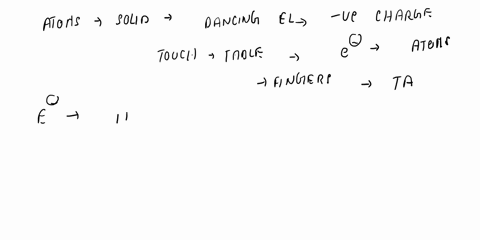 ATOMS → SOLID → DANCING EL → -VE CHARGE
TOUCH → TABLE → e⊖ → ATOMS
→ FINGERS → TA
E⊖ → 11